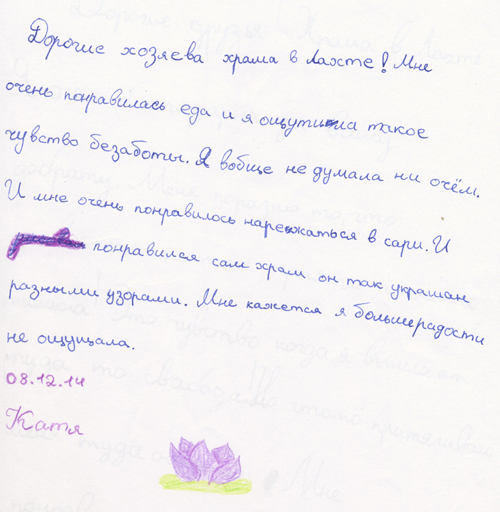 Дорогие хозяева храма в Лахте! Мне
очень понравилась еда и я ощутила такое
чувство безаботы. Я вобще не думала ни очём.
И мне очень понравилось нарежаться в сари. И
понравился сам храм он так украшан
разными узорами. Мне кажется я больше радости
не ощущала.
08.12.14
Катя